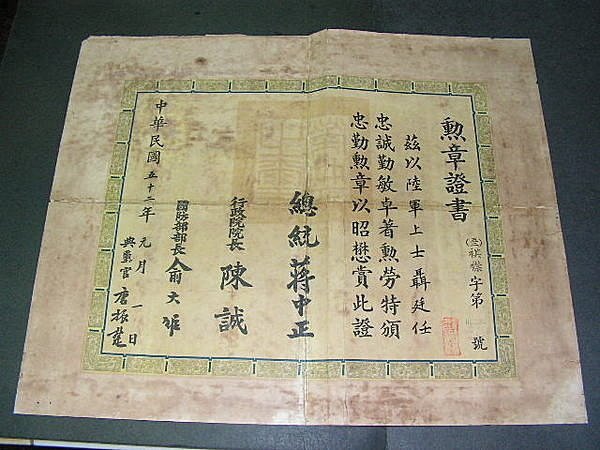 勲章證書
㊂祺襟字第 號
茲以陸軍上士聶廷任
忠誠勤敏卓著勲勞特頒
忠勤勲章以昭懋賞此證
總統蔣中正
行政院院長 陳誠
國防部部長 俞大維
中華民國五十二年元月一日
典璽官 唐振楚